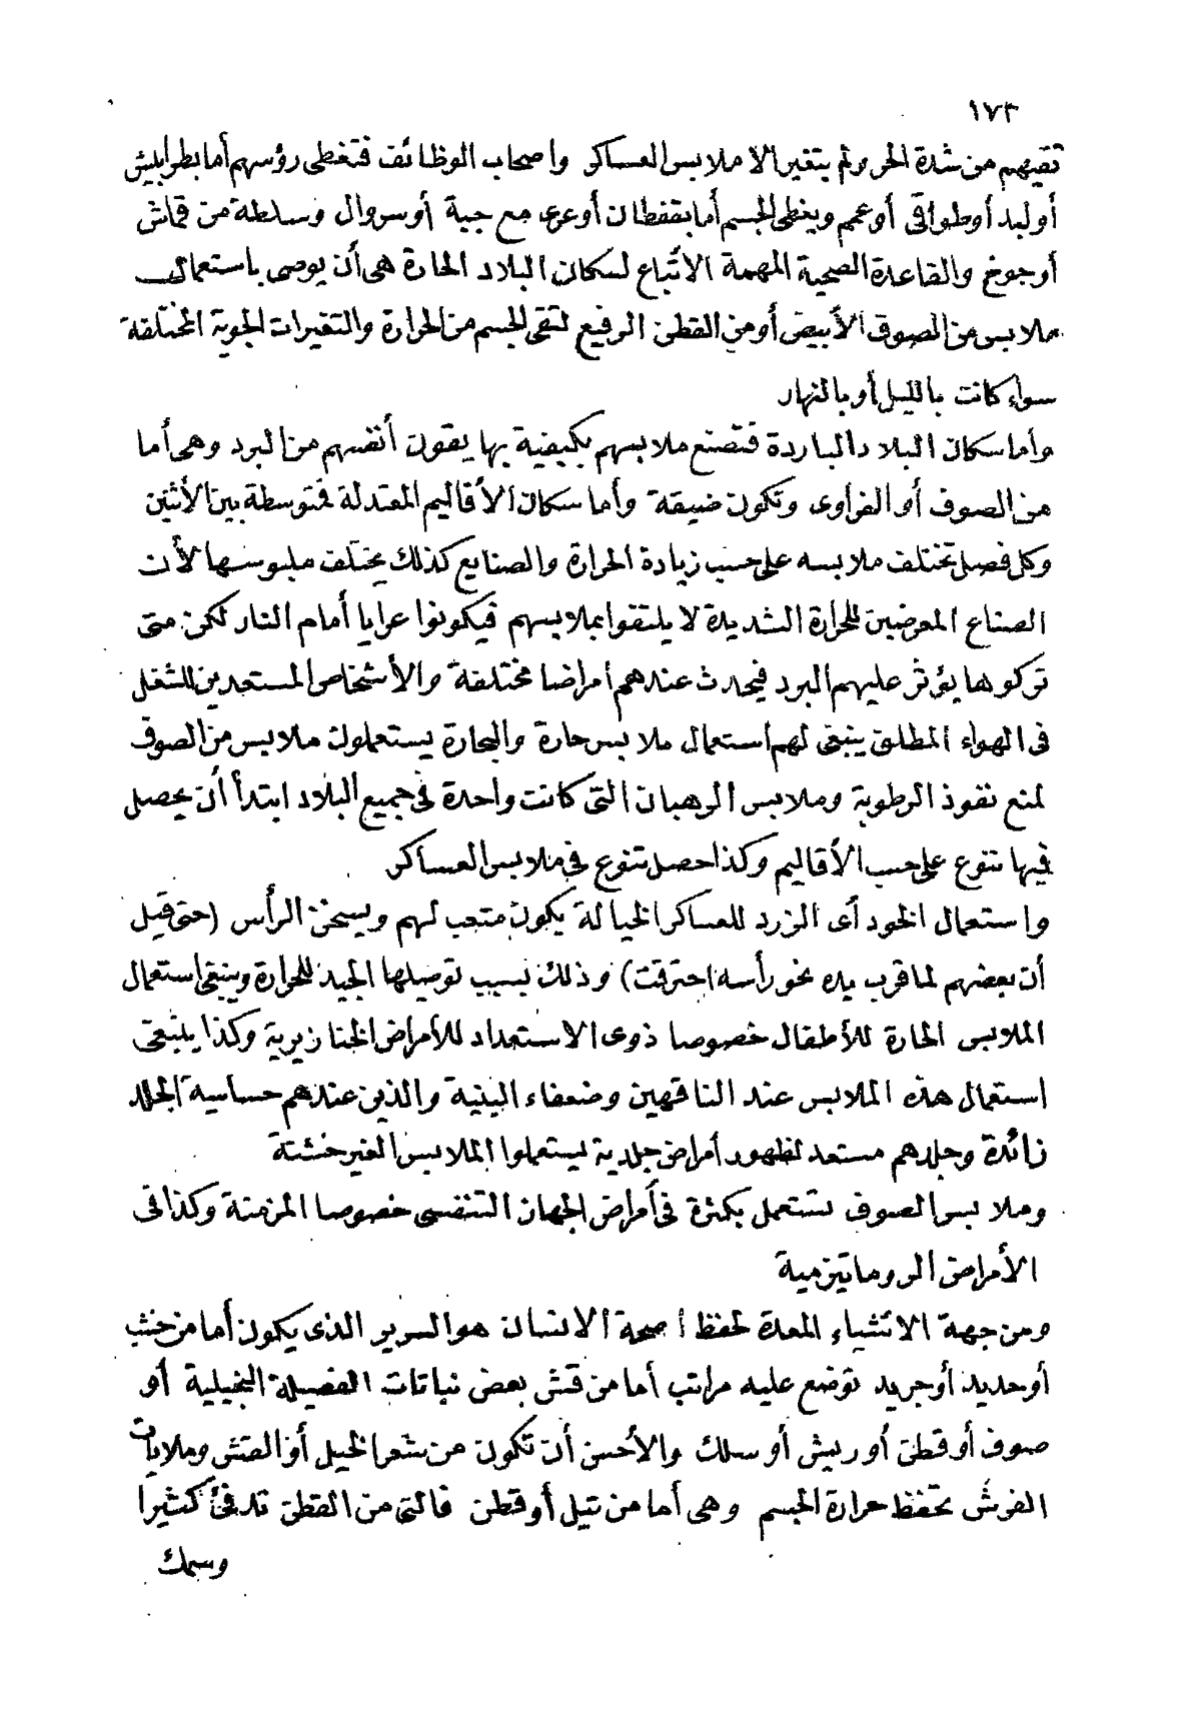 ١٧٣
تقيهم من شدة الحر ولم يتغير الا ملابس العساكر واصحاب الوظائف فتغطى رؤسهم أما بطرابيش
أو لبد أو طواقى أو عمم ويغطى الجسم أما بقفطان أو عرى مع جبة أو سروال وسلطة من قماش
أو جوخ والقاعدة الصحية المهمة الاتباع لسكان البلاد الحارة هى أن يوصى باستعمال
ملابس من الصوف الأبيض أو من القطن الرفيع لتقى الجسم من الحرارة والتغيرات الجوية المختلفة
سواء كانت بالليل أو بالنهار
وأما سكان البلاد الباردة فتصنع ملابسهم بكيفية بها يقون أنفسهم من البرد وهى أما
من الصوف أو الفراوى وتكون ضيقة وأما سكان الأقاليم المعتدلة فمتوسطة بين الأثنين
وكل فصل تختلف ملابسه على حسب زيادة الحرارة والصنايع كذلك يختلف ملبوسها لأن
الصناع المعرضين للحرارة الشديدة لا يلتفوا بملابسهم فيكونوا عرايا أمام النار لكن متى
تركوها يؤثر عليهم البرد فيحدث عندهم أمراضا مختلفة والأشخاص المستعدين للشغل
فى الهواء المطلق ينبغى لهم استعمال ملابس حارة والبحارة يستعملون ملابس من الصوف
لمنع نفوذ الرطوبة وملابس الرهبان التى كانت واحدة فى جميع البلاد ابتدأ أن يحصل
فيها تنوع على حسب الأقاليم وكذا حصل تنوع فى ملابس العساكر
واستعمال الخود أى الزرد للعساكر الخيالة يكون متعب لهم ويسخن الرأس (حتى قيل
أن بعضهم لما قرب يده نحو رأسه احترقت) وذلك بسبب توصيلها الجيد للحرارة وينبغى استعمال
الملابس الحارة للأطفال خصوصا ذوى الاستعداد للأمراض الخنازيرية وكذا ينبغى
استعمال هذه الملابس عند الناقهين وضعفاء البنية والذين عندهم حساسية الجلد
زائدة وجلدهم مستعد لظهور أمراض جلدية ليستعملوا الملابس الغير خشنة
وملابس الصوف تستعمل بكثرة فى أمراض الجهاز التنفسى خصوصا المزمنة وكذا فى
الأمراض الروماتيزمية
ومن جهة الاشياء المعدة لحفظ صحة الانسان هو السرير الذى يكون أما من خشب
أو حديد أو جريد توضع عليه مراتب أما من قش بعض نباتات الفصيلة النجيلية أو
صوف أو قطن أو ريش أو سلك والأحسن أن تكون من شعر الخيل أو القش وملايات
الفرش تحفظ حرارة الجسم وهى أما من تيل أو قطن فالتى من القطن تدفئ كثيرا
وسمك